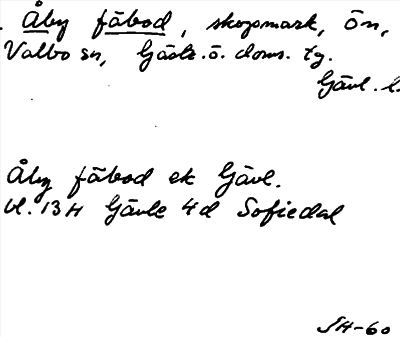 Åby fäbod, skogsmark, Ön,
Valbo sn, Gästr. ö. doms. tg.
Gävl. l.
Åby fäbod ek Gävl.
bl. 13H Gävle 4d Sofiedal
SH-60